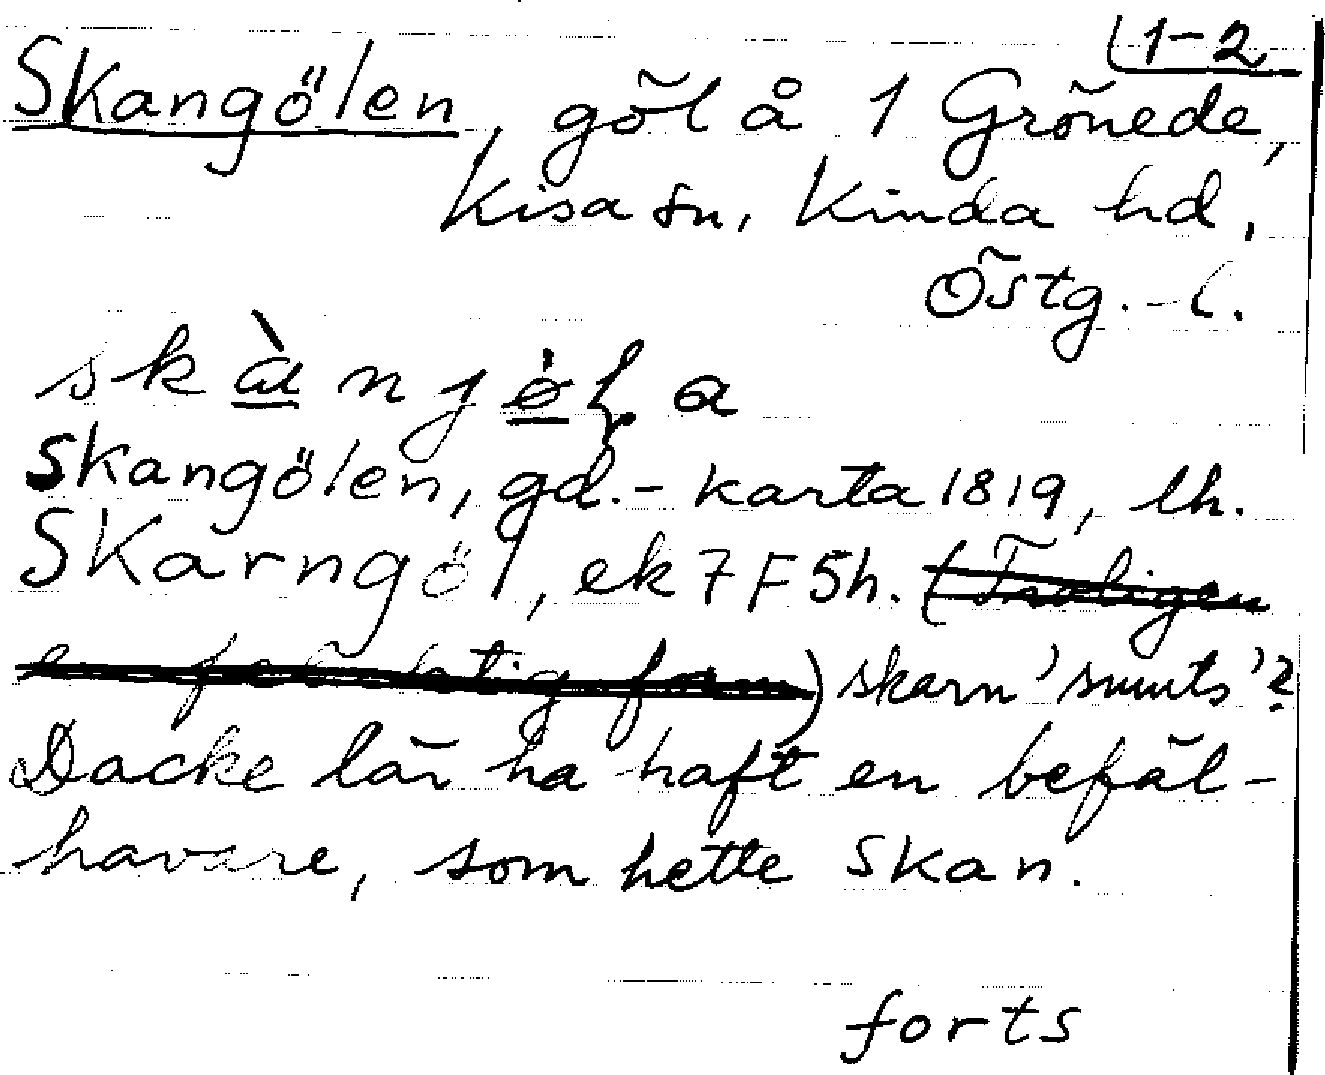 1-2
Skangölen, göl å 1 Grönede,
Kisa sn, Kinda hd,
Östg. l.
skànjøla
Skangölen, gd.- karta 1819, lh.
Skarngöl, ek 7 F 5h. (Troligen
en felaktig form) skarn 'smuts'?
Dacke lär ha haft en befäl-
havare, som hette Skan.
forts